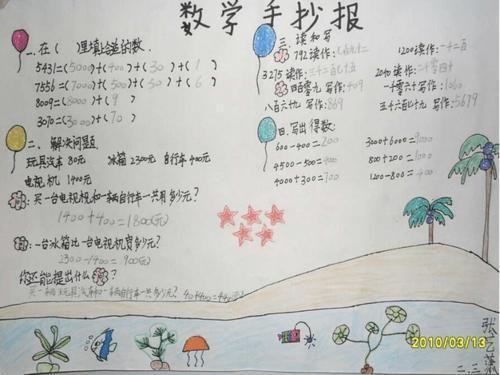 数学手抄报
一.在( )里填上合适的数.
5431=(5000)+(400)+(30)+(1)
7556=(7000)+(500)+(50)+(6)
8009=(8000)+(9)
3070=(3000)+(70)
二、解决问题
玩具汽车 80元 冰箱 2300元 自行车 400元
电视机 1400元
买一台电视机和一辆自行车一共用多少元?
1400+400=1800(元)
一台冰箱比一台电视机贵多少元?
2300-1400=900(元)
你还能提出什么?
买一辆玩具汽车和一辆自行车一共多少元?
三.读和写
792读作:七百九十二 1200读作:一千二百
3275读作:三千二百七十五 2040读作:二千零四十
四百零九 写作:409 一千零六十 写作:1060
八百六十九 写作:869
四.写出得数:
600-400=200 3000+6000=9000
4500-500=400 800+200=1000
4000+300=700 1200-800=400
2010/03/13
二.三